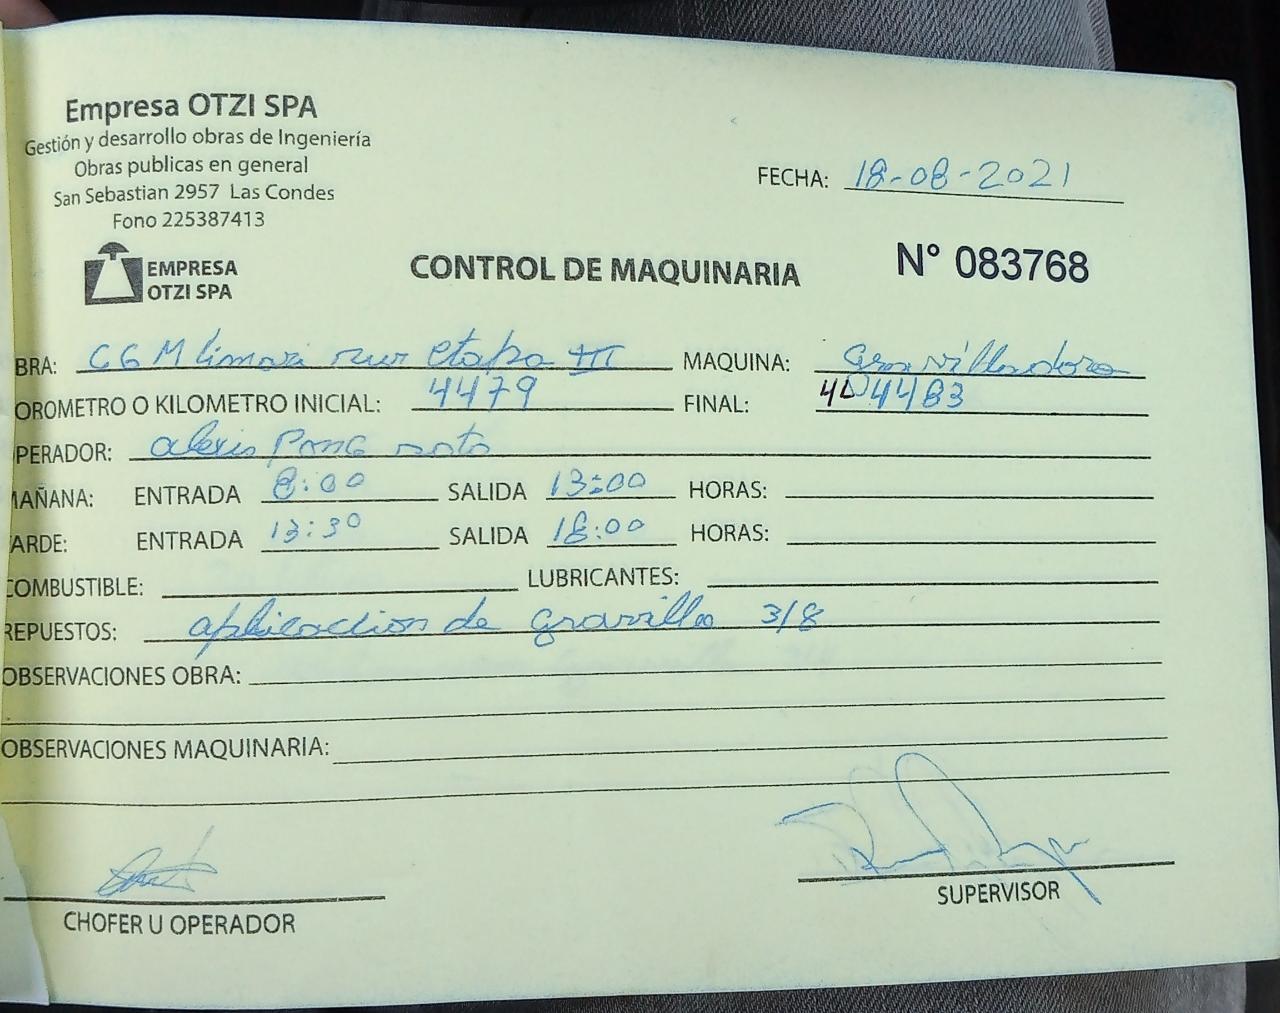 Empresa OTZI SPA
Gestión y desarrollo obras de Ingeniería
Obras publicas en general
San Sebastian 2957 Las Condes
Fono 225387413
FECHA: 18-08-2021
EMPRESA
OTZI SPA
CONTROL DE MAQUINARIA
N° 083768
BRA: CGM limari sur etapa III MAQUINA: Gravilladora
OROMETRO O KILOMETRO INICIAL: 4479 FINAL: 4483
PERADOR: alexis soto
MAÑANA: ENTRADA 8:00 SALIDA 13:00 HORAS:
ARDE: ENTRADA 13:30 SALIDA 18:00 HORAS:
COMBUSTIBLE: LUBRICANTES:
REPUESTOS: aplicaccion de gravilla 3/8
OBSERVACIONES OBRA:
OBSERVACIONES MAQUINARIA:
CHOFER U OPERADOR
SUPERVISOR